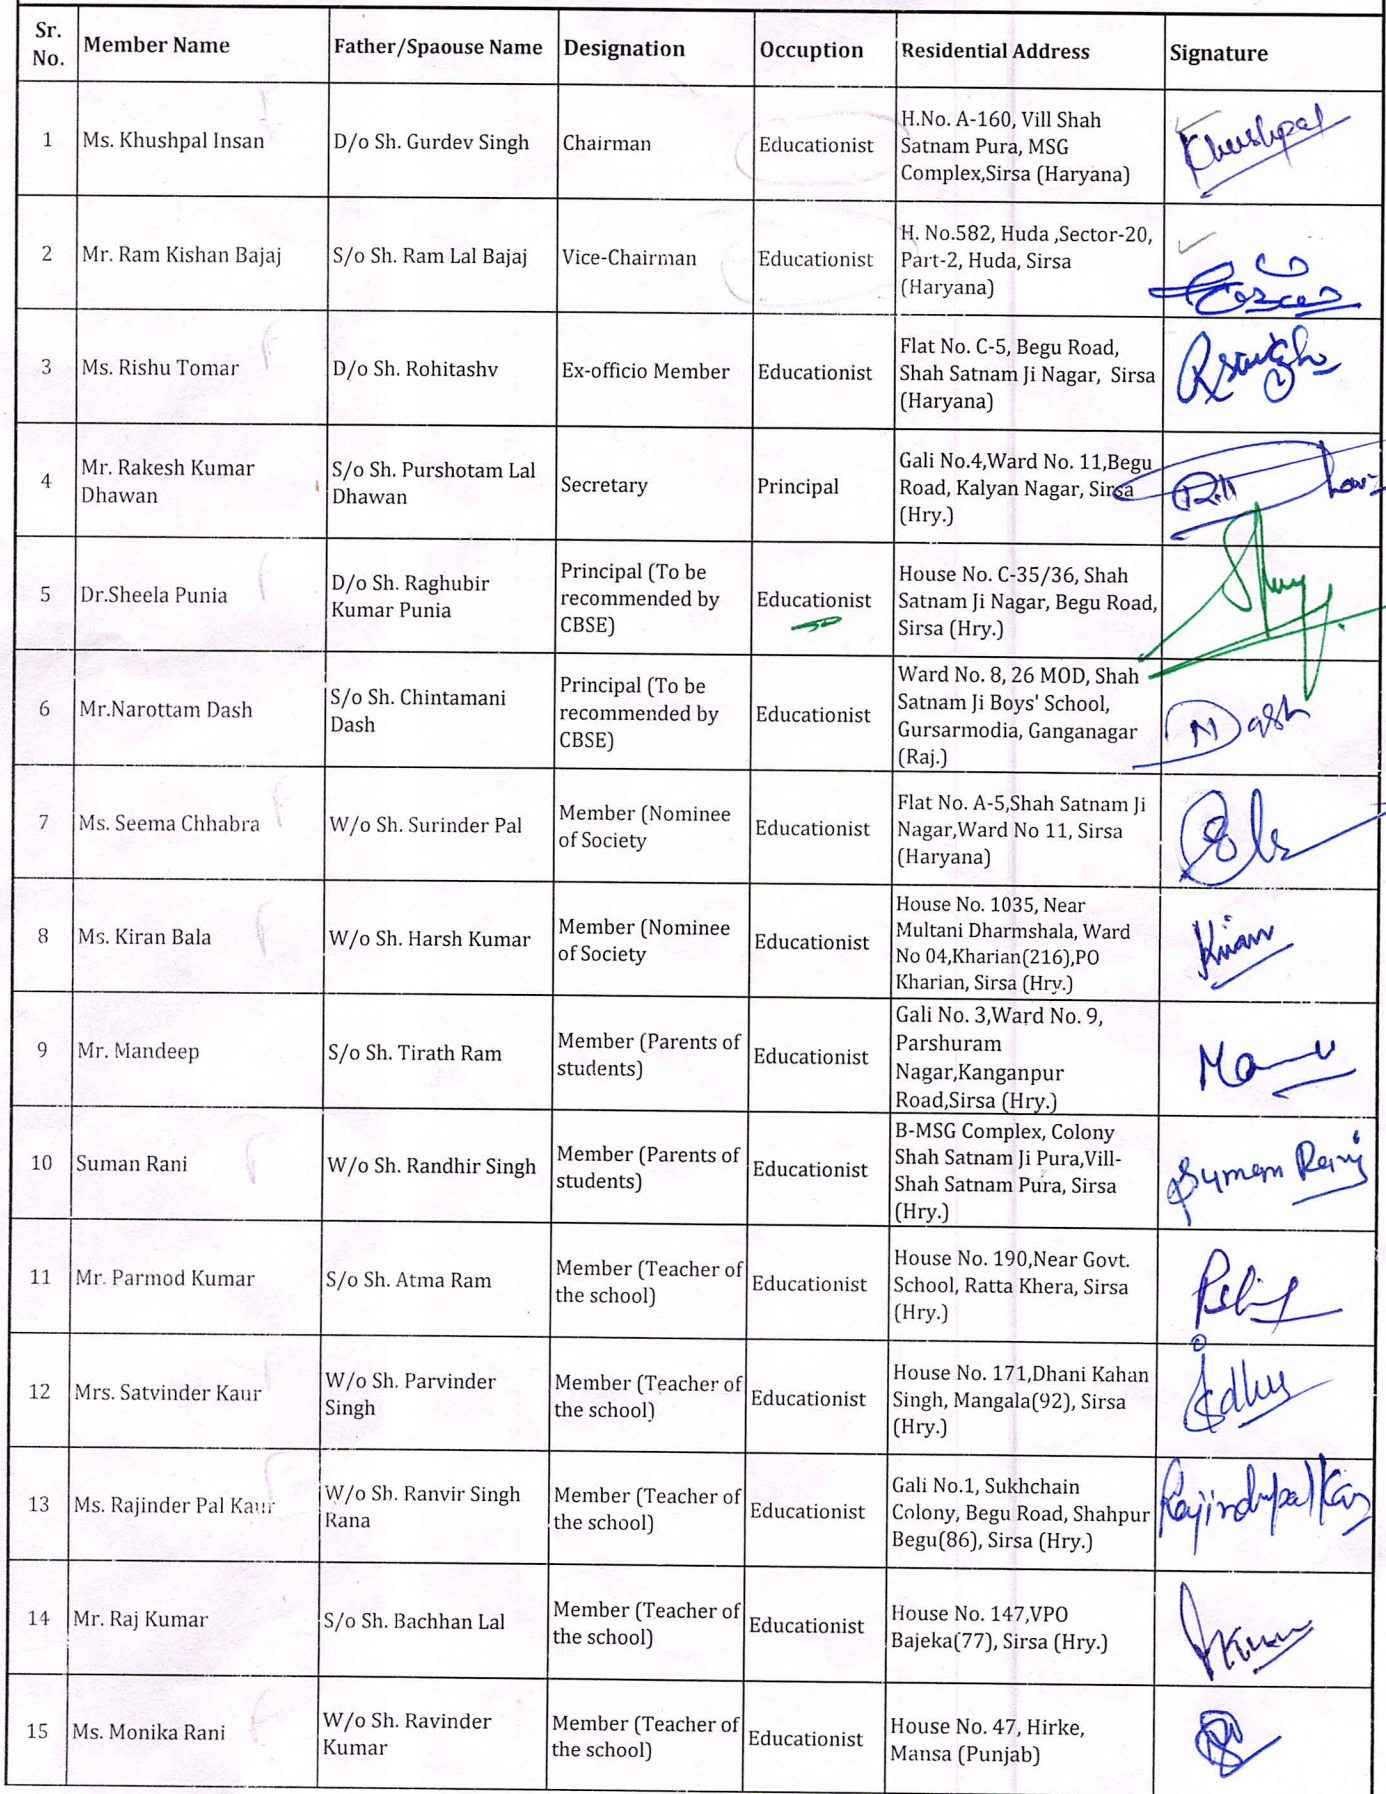 Sr.
No.
Member Name
Father/Spaouse Name
Designation
Occuption
Residential Address
Signature
1
Ms. Khushpal Insan
D/o Sh. Gurdev Singh
Chairman
Educationist
H.No. A-160, Vill Shah
Satnam Pura, MSG
Complex,Sirsa (Haryana)
Khushpal
2
Mr. Ram Kishan Bajaj
S/o Sh. Ram Lal Bajaj
Vice-Chairman
Educationist
H. No.582, Huda ,Sector-20,
Part-2, Huda, Sirsa
(Haryana)
3
Ms. Rishu Tomar
D/o Sh. Rohitashv
Ex-officio Member
Educationist
Flat No. C-5, Begu Road,
Shah Satnam Ji Nagar, Sirsa
(Haryana)
4
Mr. Rakesh Kumar
Dhawan
S/o Sh. Purshotam Lal
Dhawan
Secretary
Principal
Gali No.4,Ward No. 11,Begu
Road, Kalyan Nagar, Sirsa
(Hry.)
5
Dr.Sheela Punia
D/o Sh. Raghubir
Kumar Punia
Principal (To be
recommended by
CBSE)
Educationist
House No. C-35/36, Shah
Satnam Ji Nagar, Begu Road,
Sirsa (Hry.)
6
Mr.Narottam Dash
S/o Sh. Chintamani
Dash
Principal (To be
recommended by
CBSE)
Educationist
Ward No. 8, 26 MOD, Shah
Satnam Ji Boys' School,
Gursarmodia, Ganganagar
(Raj.)
N Dash
7
Ms. Seema Chhabra
W/o Sh. Surinder Pal
Member (Nominee
of Society
Educationist
Flat No. A-5,Shah Satnam Ji
Nagar,Ward No 11, Sirsa
(Haryana)
8
Ms. Kiran Bala
W/o Sh. Harsh Kumar
Member (Nominee
of Society
Educationist
House No. 1035, Near
Multani Dharmshala, Ward
No 04,Kharian(216),PO
Kharian, Sirsa (Hry.)
Kiran
9
Mr. Mandeep
S/o Sh. Tirath Ram
Member (Parents of
students)
Educationist
Gali No. 3,Ward No. 9,
Parshuram
Nagar,Kanganpur
Road,Sirsa (Hry.)
10
Suman Rani
W/o Sh. Randhir Singh
Member (Parents of
students)
Educationist
B-MSG Complex, Colony
Shah Satnam Ji Pura,Vill-
Shah Satnam Pura, Sirsa
(Hry.)
Suman Rani
11
Mr. Parmod Kumar
S/o Sh. Atma Ram
Member (Teacher of
the school)
Educationist
House No. 190,Near Govt.
School, Ratta Khera, Sirsa
(Hry.)
12
Mrs. Satvinder Kaur
W/o Sh. Parvinder
Singh
Member (Teacher of
the school)
Educationist
House No. 171,Dhani Kahan
Singh, Mangala(92), Sirsa
(Hry.)
13
Ms. Rajinder Pal Kaur
W/o Sh. Ranvir Singh
Rana
Member (Teacher of
the school)
Educationist
Gali No.1, Sukhchain
Colony, Begu Road, Shahpur
Begu(86), Sirsa (Hry.)
Rajinderpal Kaur
14
Mr. Raj Kumar
S/o Sh. Bachhan Lal
Member (Teacher of
the school)
Educationist
House No. 147,VPO
Bajeka(77), Sirsa (Hry.)
15
Ms. Monika Rani
W/o Sh. Ravinder
Kumar
Member (Teacher of
the school)
Educationist
House No. 47, Hirke,
Mansa (Punjab)